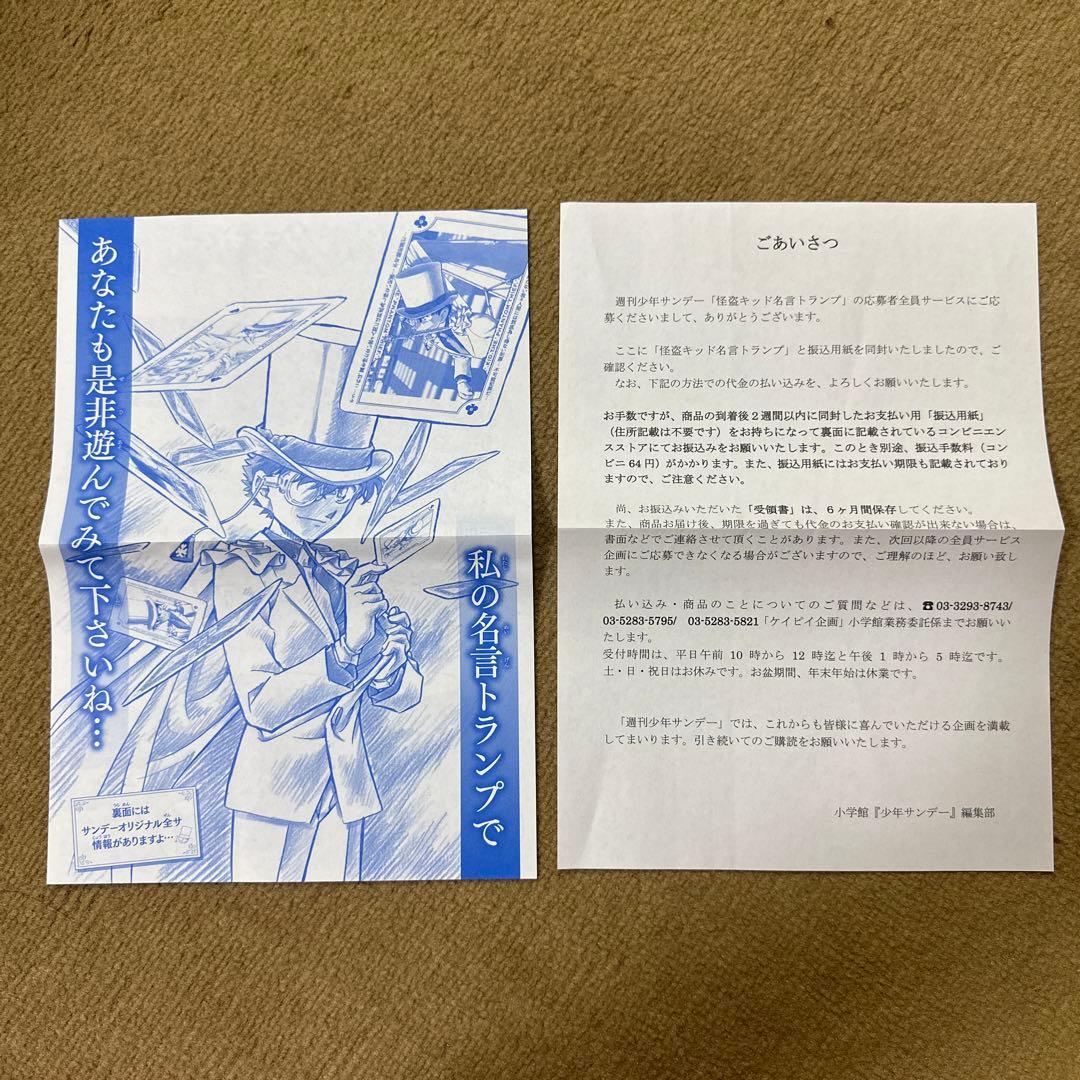 私の名言トランプで
あなたも是非遊んでみて下さいね…
裏面には
サンデーオリジナル全サ
情報がありますよ…
ごあいさつ
週刊少年サンデー「怪盗キッド名言トランプ」の応募者全員サービスにご応
募くださいまして、ありがとうございます。
ここに「怪盗キッド名言トランプ」と振込用紙を同封いたしましたので、ご
確認ください。
なお、下記の方法での代金の払い込みを、よろしくお願いいたします。
お手数ですが、商品の到着後2週間以内に同封したお支払い用「振込用紙」
（住所記載は不要です）をお持ちになって裏面に記載されているコンビニエン
スストアにてお振込みをお願いいたします。このとき別途、振込手数料（コン
ビニ 64 円）がかかります。また、振込用紙にはお支払い期限も記載されており
ますので、ご注意ください。
尚、お振込みいただいた「受領書」は、6ヶ月間保存してください。
また、商品お届け後、期限を過ぎても代金のお支払い確認が出来ない場合は、
書面などでご連絡させて頂くことがあります。また、次回以降の全員サービス
企画にご応募できなくなる場合がございますので、ご理解のほど、お願い致し
ます。
払い込み・商品のことについてのご質問などは、☎03-3293-8743/
03-5283-5795/ 03-5283-5821「ケイピイ企画」小学館業務委託係までお願いい
たします。
受付時間は、平日午前 10 時から 12 時迄と午後 1 時から 5 時迄です。
土・日・祝日はお休みです。お盆期間、年末年始は休業です。
「週刊少年サンデー」では、これからも皆様に喜んでいただける企画を満載
してまいります。引き続いてのご購読をお願いいたします。
小学館『少年サンデー』編集部